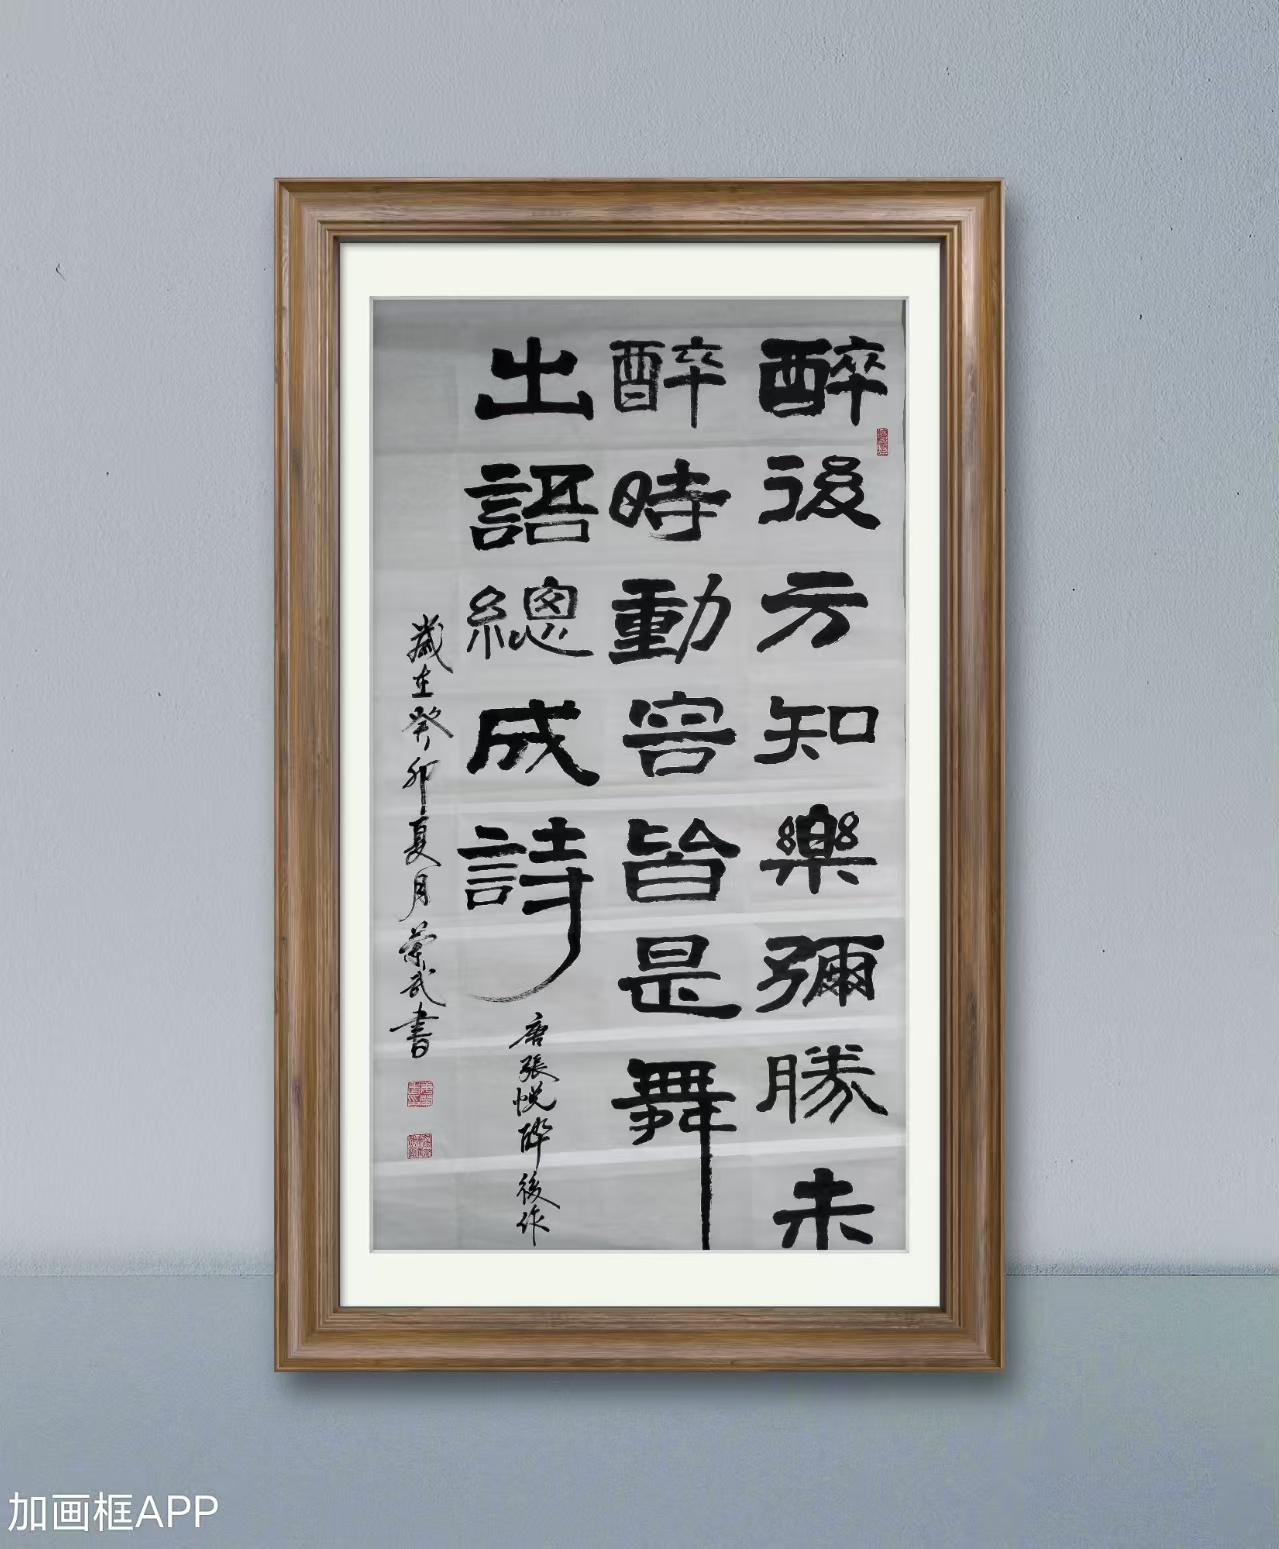 醉後方知樂彌勝未
醉時動容皆是舞
出語總成詩
唐張悅醉後作
歲在癸卯夏月榮武書
加画框APP